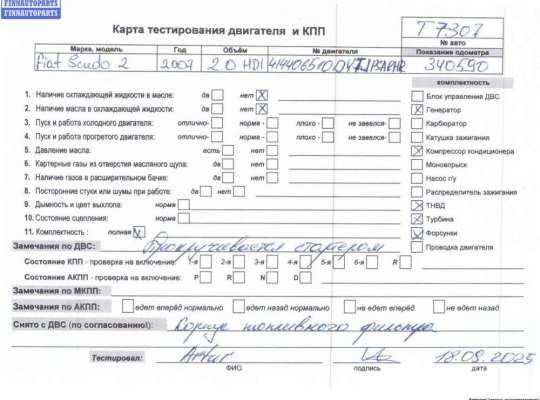 FINNAUTOPARTS
Карта тестирования двигателя и КПП
Т 7307
№ авто
Марка, модель Год Объём № двигателя Показание одометра
Fiat Scudo 2 2007 2.0 HDI 340590
комплектность
1. Наличие охлаждающей жидкости в масле: да нет X
2. Наличие масла в охлаждающей жидкости: да нет X
3. Пуск и работа холодного двигателя: отлично- норма - плохо - не завелся-
4. Пуск и работа прогретого двигателя: отлично- норма - плохо - не завелся-
5. Давление масла: есть нет
6. Картерные газы из отверстия масляного щупа: да нет
7. Наличие газов в расширительном бачке: да нет
8. Посторонние стуки или шумы при работе: да нет
9. Дымность и цвет выхлопа: норма
10. Состояние сцепления: норма
11. Комплектность : полная X
Блок управления ДВС
X Генератор
Карбюратор
Катушка зажигания
X Компрессор кондиционера
Моновпрыск
Насос г\у
Распределитель зажигания
X ТНВД
X Турбина
X Форсунки
Проводка двигателя
Замечания по ДВС: Прокручивается стартером
Состояние КПП - проверка на включение: 1-я 2-я 3-я 4-я 5-я 6-я R
Состояние АКПП - проверка на включение: P R N D
Замечания по МКПП:
Замечания по АКПП: едет вперёд нормально едет назад нормально не едет вперёд не едет назад
Снято с ДВС (по согласованию): Корпус топливного фильтра
Тестировал: Artur 18.09.2025
ФИО подпись дата